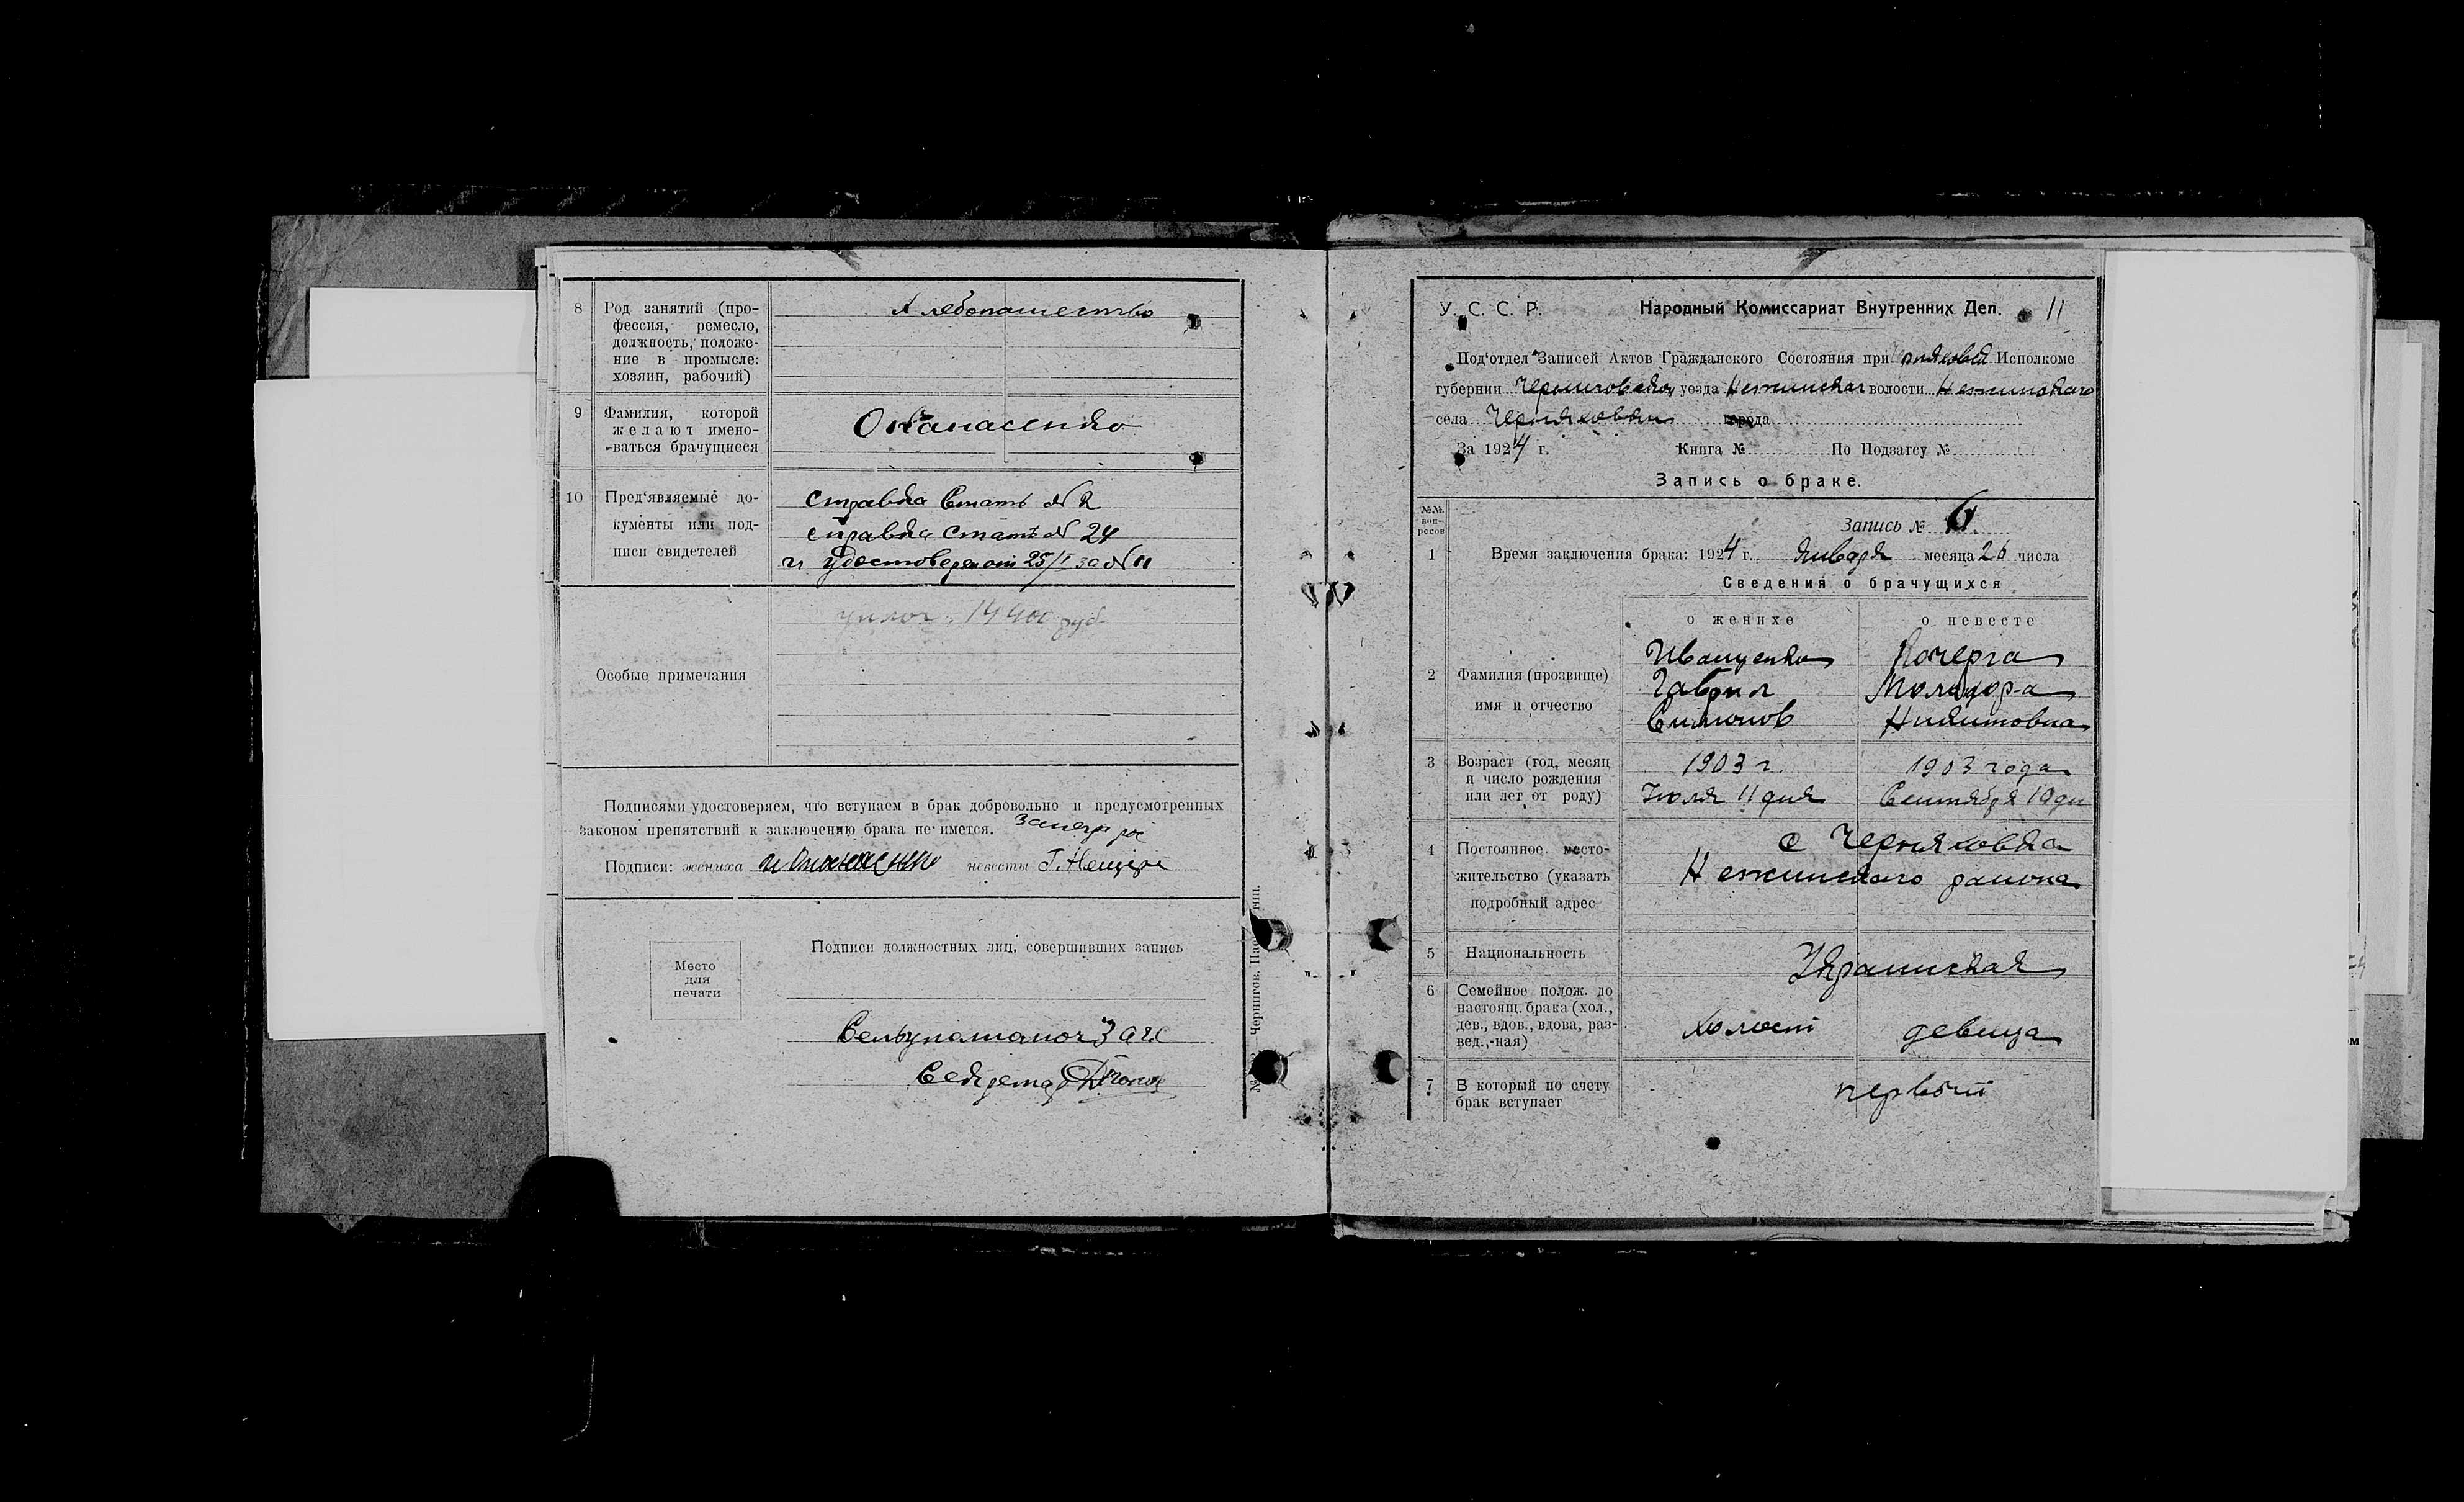 8 Род занятий (про-
фессия, ремесло,
должность, положе-
ние в промысле:
хозяин, рабочий)
Хлебопашество
9 Фамилия, которой
желают имено-
ваться брачущиеся
Опанасенко
10 Пред'являемые до-
кументы или под-
писи свидетелей
справка Стать № 2
справка стать № 24
и удостоверен от 25/I за № 11
Особые примечания
14400 руб
Подписями удостоверяем, что вступаем в брак добровольно и предусмотренных
законом препятствий к заключению брака не имется.
Подписи: жениха невесты
Место
для
печати
Подписи должностных лиц, совершивших запись
ЗАГС
У. С. С. Р. Народный Комиссариат Внутренних Дел. 11
Под'отдел Записей Актов Гражданского Состояния при Исполкоме
губернии Черниговской уезда Нежинская волости Нежинского
села Черняховки города
За 1924 г. Книга № По Подзагсу №
Запись о браке.
№№ воп-
росов
Запись № 6
1 Время заключения брака: 1924 г. января месяца 26 числа
Сведения о брачущихся
о женихе о невесте
2 Фамилия (прозвище)
имя и отчество
Иващенко Кочерга
Гаврил
Симонов Никитовна
3 Возраст (год, месяц
и число рождения
или лет от роду)
1903 г. 1903 года
Июля 11 дня Сентября 10 дн
4 Постоянное место-
жительство (указать
подробный адрес
с Черняховка
Нежинского района
5 Национальность
Украинская
6 Семейное полож. до
настоящ. брака (хол.,
дев., вдов., вдова, раз-
вед.,-ная)
холост девица
7 В который по счету
брак вступает
первый